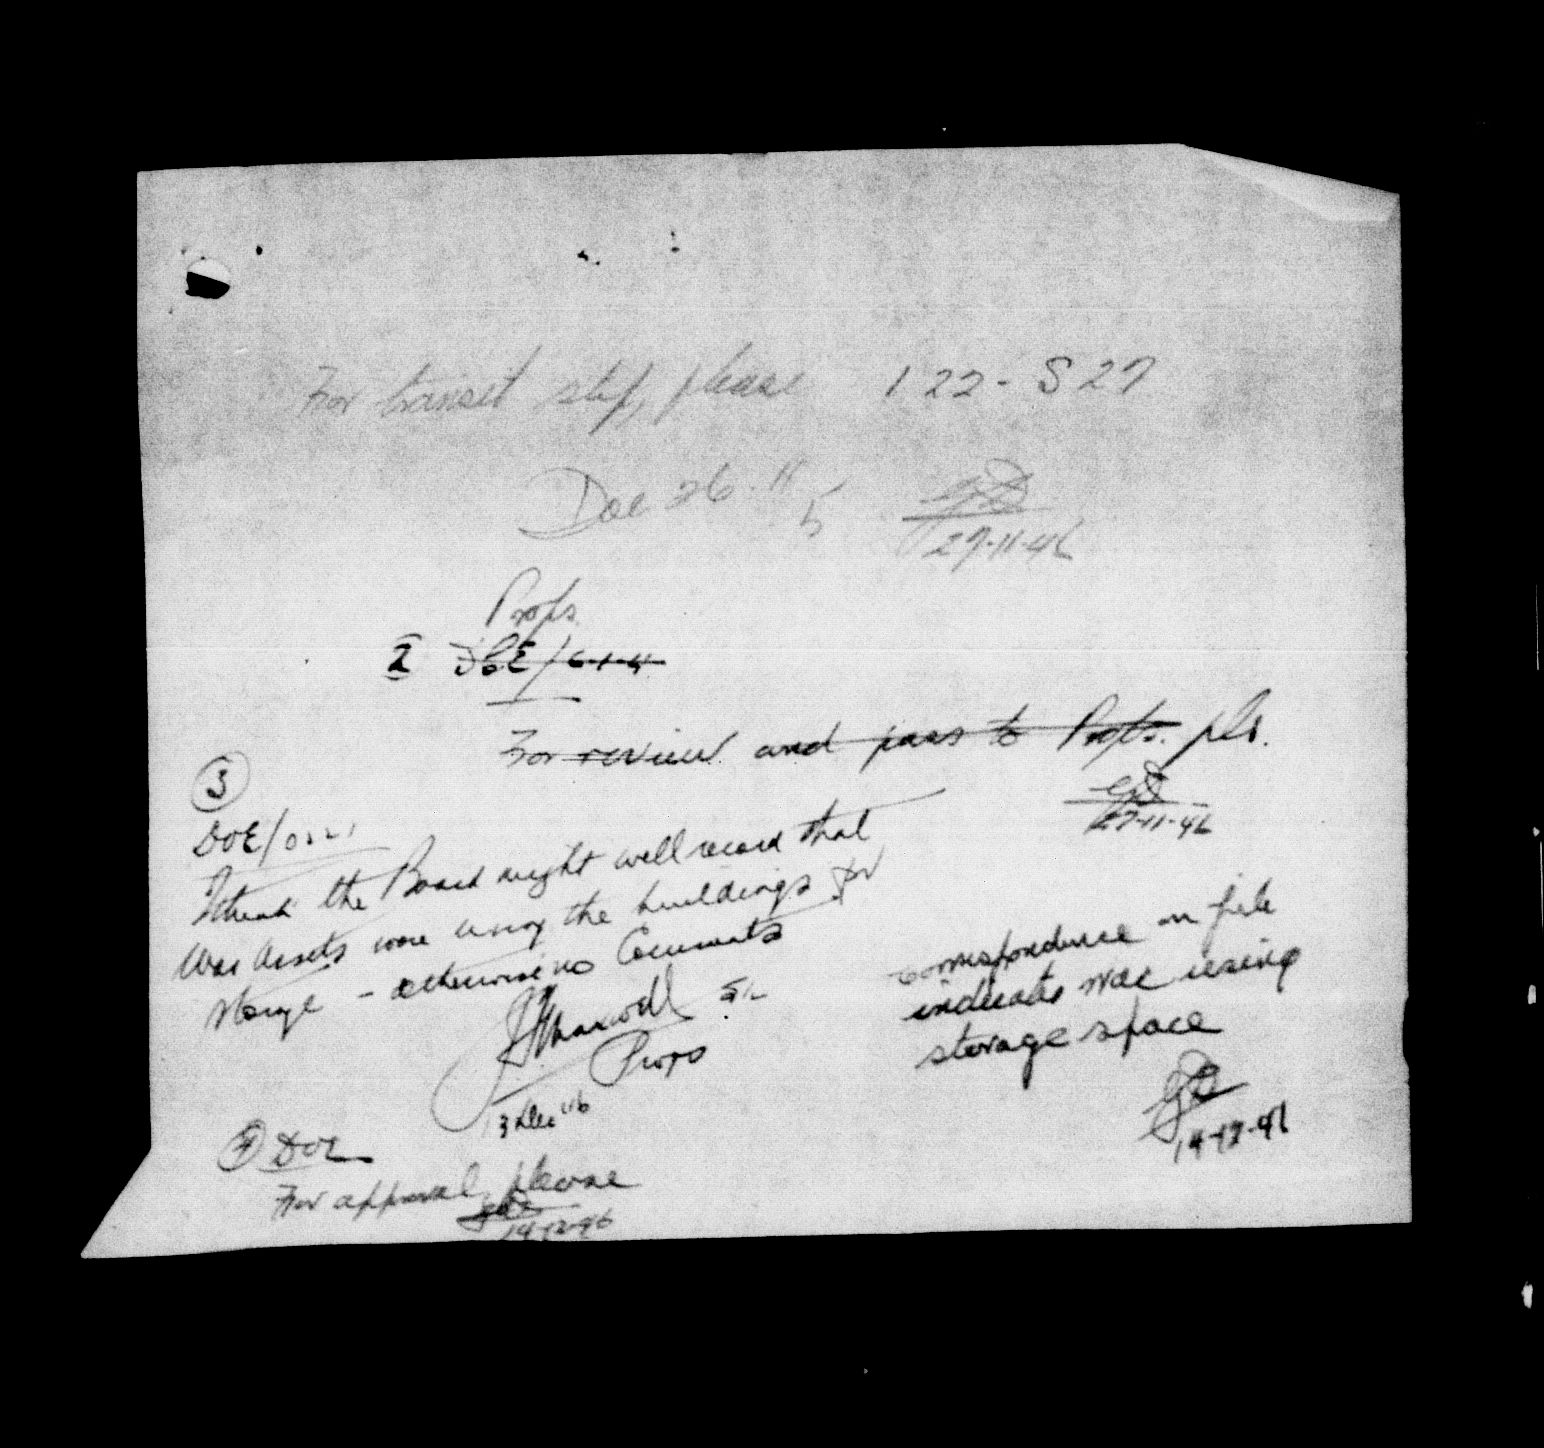 For transit slip, please 122-S27
Doe 26.11
27-11-46
Props.
2 DOE/
For review and pass to Props. pls.
27-11-46
3
DOE/
I think the Board might well record that
War Assets were using the buildings for
storage - otherwise no Comments
Maxwell S/L
Props
3 Dec 46
correspondence on file
indicates WAC using
storage space
14-12-46
4 DOE
For approval, please
14-12-46